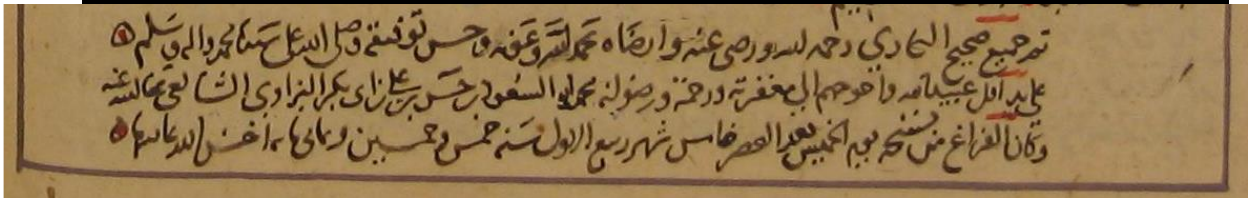 تم جميع صحيح البخاري رحمه الله ورضي عنه وارضاه بحمد الله وعونه وحسن توفيقه وصلى الله على سيدنا محمد واله وسلم
على يد اقل عبيد الله واحوجهم الى مغفرته ورحمته ورضوانه محمد ابو السعود بن حسن بن علي بن ابي بكر البزاوي الشافعي عفا الله عنه
وكان الفراغ من نسخه يوم الخميس بعد العصر خامس شهر ربيع الاول سنة خمس وخمسين وثماني ماية احسن الله عاقبتها